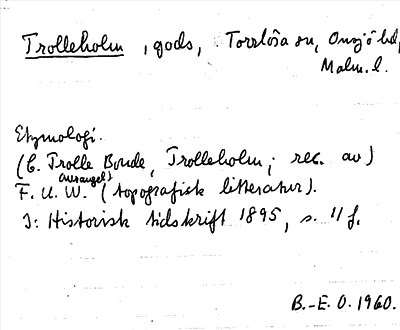 Trolleholm, gods, Torrlösa sn, Onsjö hd,
Malm. l.
Etymologi.
(C. Trolle Bonde, Trolleholm; rec. av)
F. U. W. (Wrangel) (topografisk litteratur).
I: Historisk tidskrift 1895, s. 11 f.
B.-E. O. 1960.